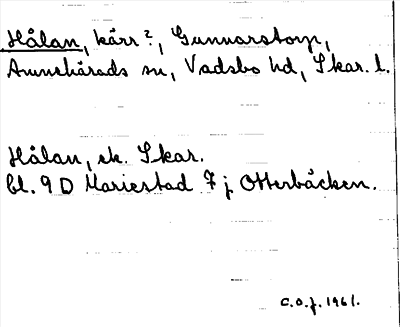 Hålan, kärr?, Gunnarstorp,
Amnehärads sn, Vadsbo hd, Skar. l.
Hålan, ek. Skar.
bl. 9 D Mariestad 7 j Otterbäcken.
C.O.f. 1961.